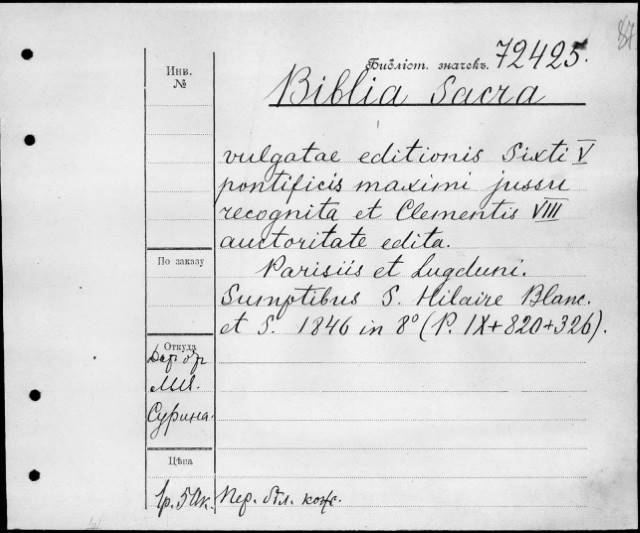 87
Библіот. значекъ. 72425.
Инв.
№
Biblia Sacra
vulgatae editionis Sixti V
pontificis maximi jussu
recognita et Clementis VIII
auctoritate edita.
По заказу
Parisiis et Lugduni.
Sumptibus S. Hilaire Blanc.
et S. 1846 in 8° (P. IX+820+326).
Откуда
Сурина.
Цѣна
1р. 50к. Пер. бѣл. кож.